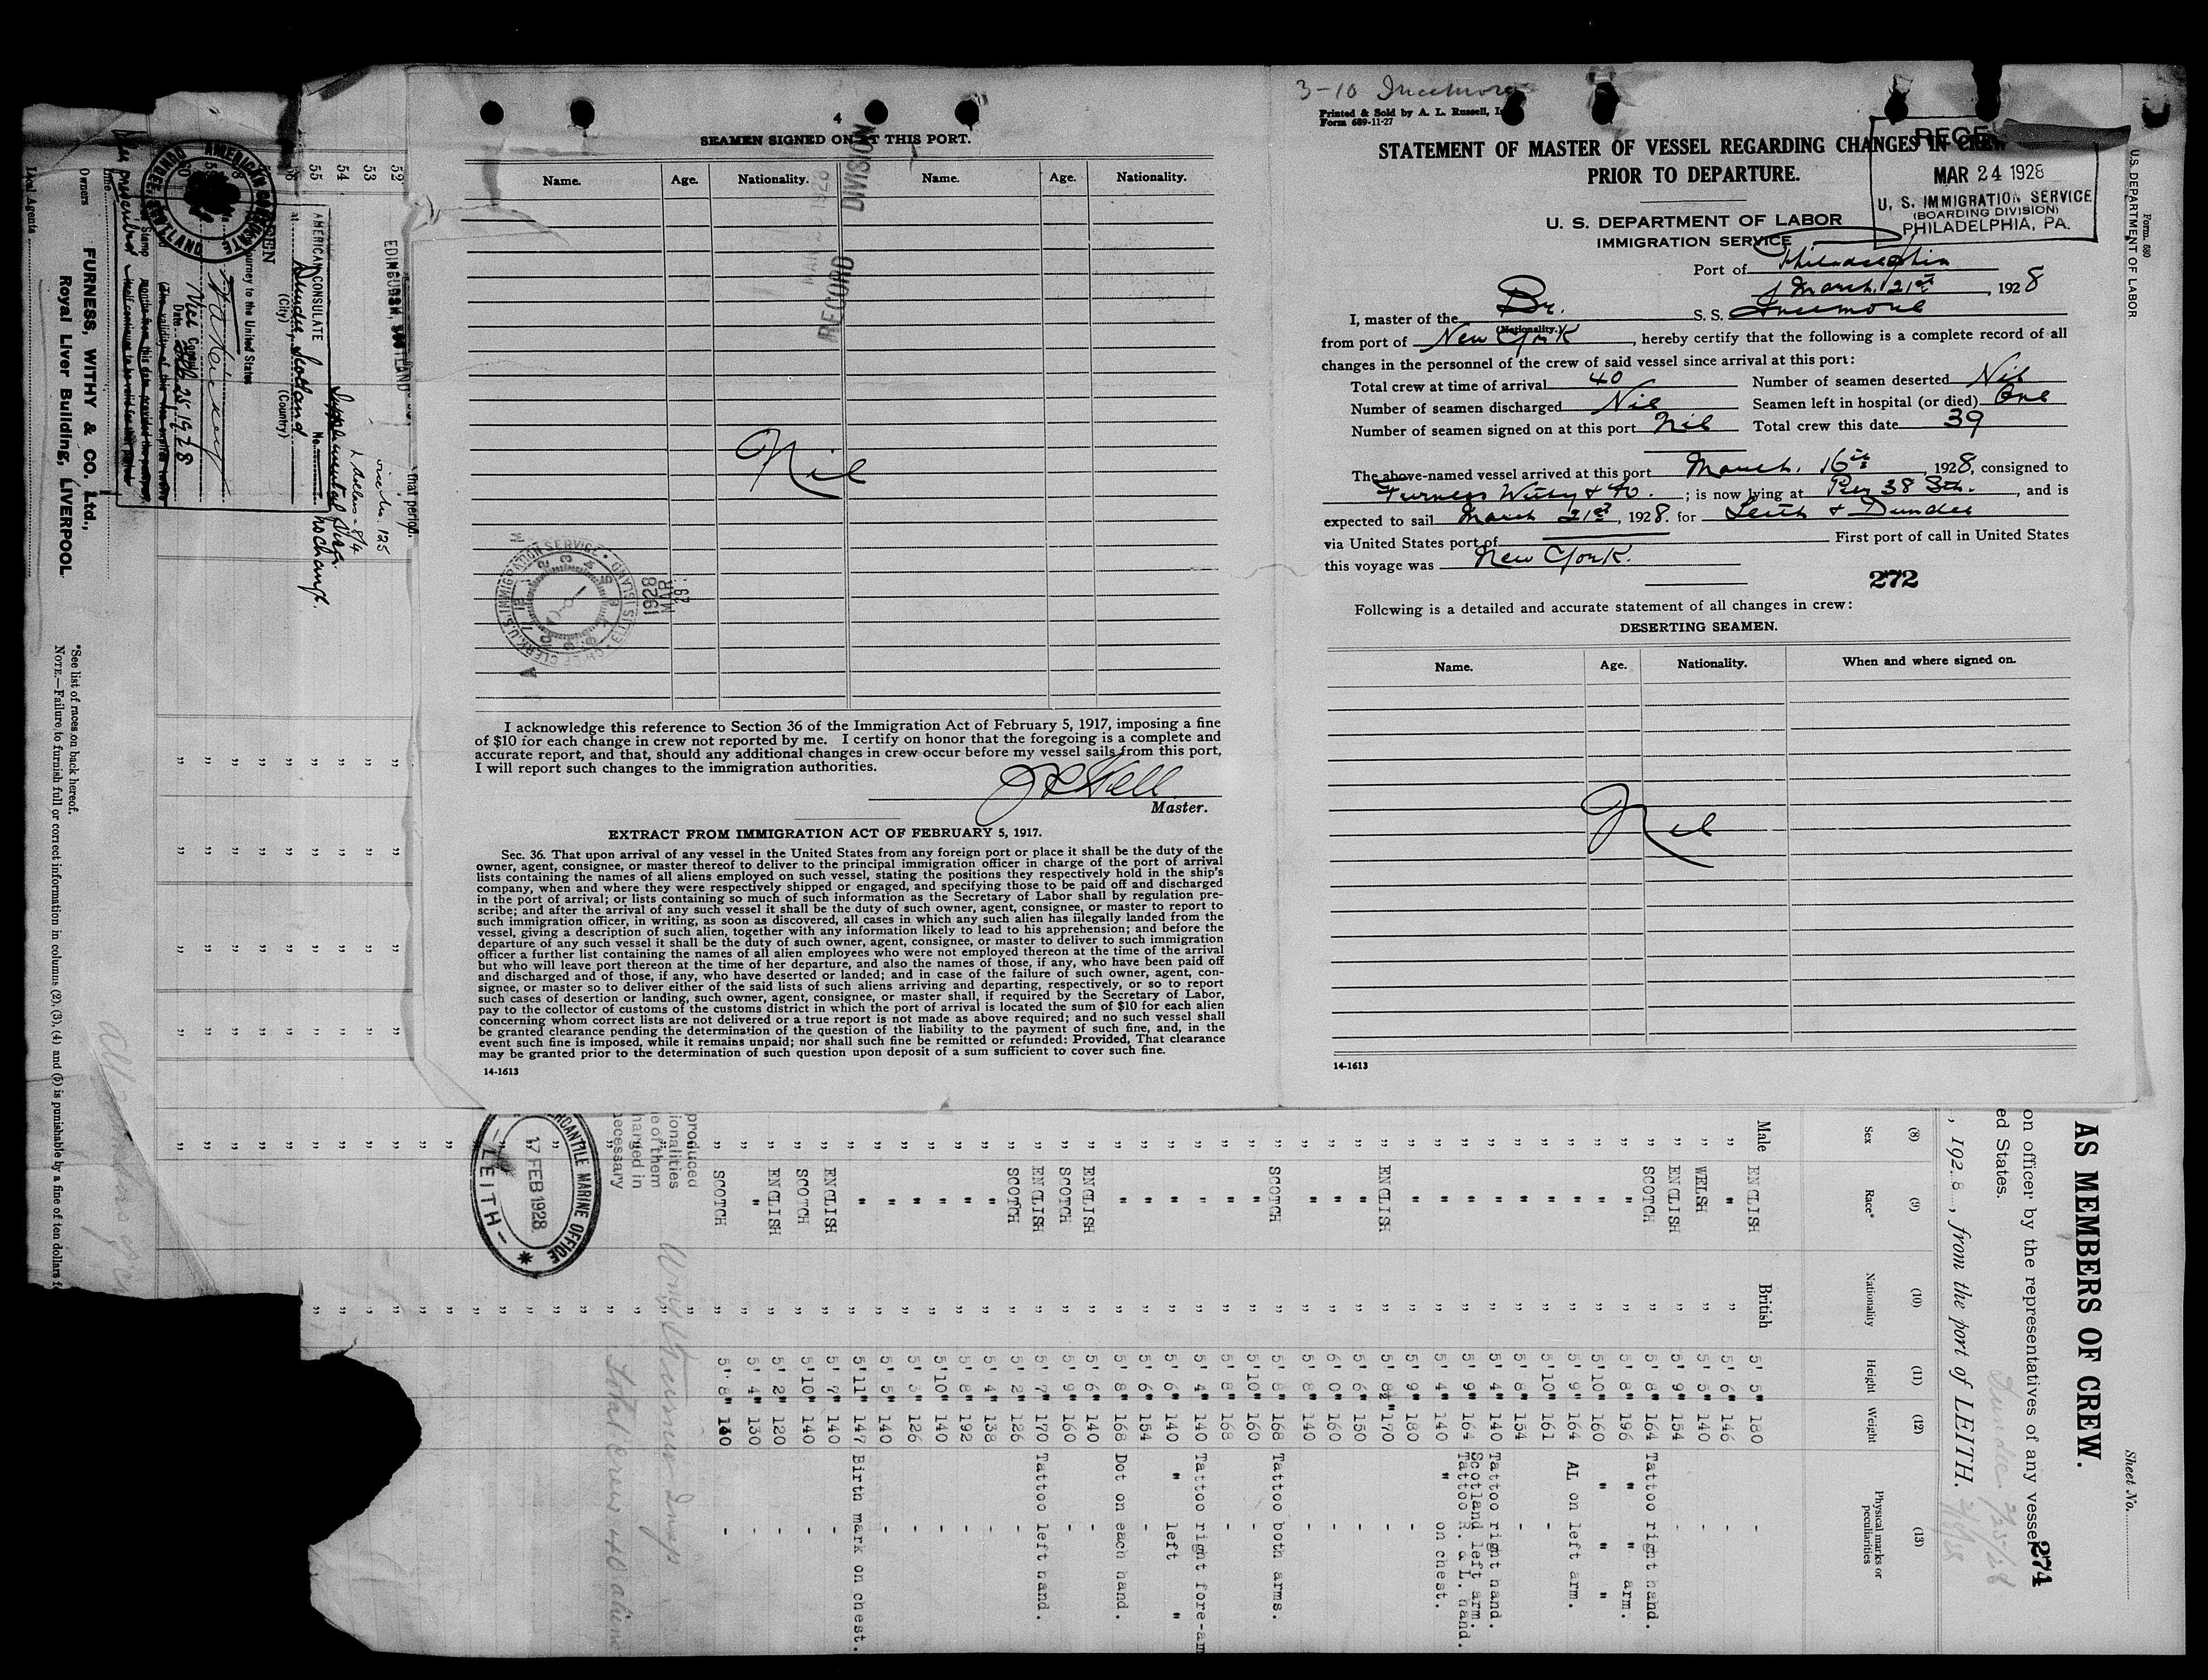 4
SEAMEN SIGNED ON AT THIS PORT.
Name. Age. Nationality. Name. Age. Nationality.
RECORD DIVISION
Nil
CLERK U.S. IMMIGRATION SERVICE • ELLIS ISLAND
1928
MAR
29
I acknowledge this reference to Section 36 of the Immigration Act of February 5, 1917, imposing a fine
of $10 for each change in crew not reported by me. I certify on honor that the foregoing is a complete and
accurate report, and that, should any additional changes in crew occur before my vessel sails from this port,
I will report such changes to the immigration authorities.
Master.
EXTRACT FROM IMMIGRATION ACT OF FEBRUARY 5, 1917.
Sec. 36. That upon arrival of any vessel in the United States from any foreign port or place it shall be the duty of the
owner, agent, consignee, or master thereof to deliver to the principal immigration officer in charge of the port of arrival
lists containing the names of all aliens employed on such vessel, stating the positions they respectively hold in the ship's
company, when and where they were respectively shipped or engaged, and specifying those to be paid off and discharged
in the port of arrival; or lists containing so much of such information as the Secretary of Labor shall by regulation pre-
scribe; and after the arrival of any such vessel it shall be the duty of such owner, agent, consignee, or master to report to
such immigration officer, in writing, as soon as discovered, all cases in which any such alien has illegally landed from the
vessel, giving a description of such alien, together with any information likely to lead to his apprehension; and before the
departure of any such vessel it shall be the duty of such owner, agent, consignee, or master to deliver to such immigration
officer a further list containing the names of all alien employees who were not employed thereon at the time of the arrival
but who will leave port thereon at the time of her departure, and also the names of those, if any, who have been paid off
and discharged and of those, if any, who have deserted or landed; and in case of the failure of such owner, agent, con-
signee, or master so to deliver either of the said lists of such aliens arriving and departing, respectively, or so to report
such cases of desertion or landing, such owner, agent, consignee, or master shall, if required by the Secretary of Labor,
pay to the collector of customs of the customs district in which the port of arrival is located the sum of $10 for each alien
concerning whom correct lists are not delivered or a true report is not made as above required; and no such vessel shall
be granted clearance pending the determination of the question of the liability to the payment of such fine, and, in the
event such fine is imposed, while it remains unpaid; nor shall such fine be remitted or refunded: Provided, That clearance
may be granted prior to the determination of such question upon deposit of a sum sufficient to cover such fine.
14-1613
3-10 Incemore
Printed & Sold by A. L. Russell, I
Form 689-11-27
STATEMENT OF MASTER OF VESSEL REGARDING CHANGES IN CREW
PRIOR TO DEPARTURE.
RECE
MAR 24 1928
U. S. IMMIGRATION SERVICE
(BOARDING DIVISION)
PHILADELPHIA, PA.
U. S. DEPARTMENT OF LABOR
IMMIGRATION SERVICE
Port of Philadelphia
March 21st, 1928
I, master of the Br. S. S. Incemore
(Nationality.)
from port of New York, hereby certify that the following is a complete record of all
changes in the personnel of the crew of said vessel since arrival at this port:
Total crew at time of arrival 40 Number of seamen deserted Nil
Number of seamen discharged Nil Seamen left in hospital (or died) One
Number of seamen signed on at this port Nil Total crew this date 39
The above-named vessel arrived at this port March. 16th, 1928, consigned to
Furness Withy & Co.; is now lying at Pier 38 Sth., and is
expected to sail March 21st, 1928. for Leith & Dundee
via United States port of First port of call in United States
this voyage was New York.
272
Following is a detailed and accurate statement of all changes in crew:
DESERTING SEAMEN.
Name. Age. Nationality. When and where signed on.
Nil
14-1613
Form 680
U.S. DEPARTMENT OF LABOR
Sheet No.
AS MEMBERS OF CREW.
274
on officer by the representatives of any vessel
ed States.
Dundee 2/25/28
, 1928, from the port of LEITH.
(8) (9) (10) (11) (12) (13)
Sex Race* Nationality Height Weight Physical marks or peculiarities
Male ENGLISH British 5' 5" 180 -
" " " 5' 6" 146 -
" WELSH " 5' 5" 140 -
" ENGLISH " 5' 9" 154 -
" SCOTCH " 5' 8" 164 Tattoo right hand.
" " " 5' 8" 196 " " arm.
" " " 5'10" 160 " " "
" " " 5' 9" 164 AL on left arm.
" " " 5'10" 161 -
" " " 5' 8" 154 -
" " " 5' 4" 140 Tattoo right hand.
Scotland left arm.
" " " 5' 9" 164 Tattoo R. & L. hand.
" " " 5' 4" 140 " on chest.
" " " 5' 9" 180 -
" ENGLISH " 5' 8½" 170 -
" " " 5' 6" 150 -
" " " 6' 0" 160 -
" " " 5' 8" 140 -
" SCOTCH " 5' 8" 168 Tattoo both arms.
" " " 5'10" 160 -
" " " 5' 8" 168 -
" " " 5' 4" 140 Tattoo right fore-am
" " " 5' 6" 140 " left "
" " " 5' 6" 154 -
" " " 5' 8" 168 Dot on each hand.
" ENGLISH " 5' 6" 140 -
" SCOTCH " 5' 9" 160 -
" ENGLISH " 5' 7" 170 Tattoo left hand.
" SCOTCH " 5' 2" 126 -
" " " 5' 4" 138 -
" " " 5' 8" 192 -
" " " 5'10" 140 -
" " " 5' 3" 126 -
" " " 5' 5" 140 -
" " " 5'11" 147 Birth mark on chest.
" ENGLISH " 5' 7" 140 -
" SCOTCH " 5'10" 140 -
" ENGLISH " 5' 2" 120 -
" " " 5' 4" 130 -
" SCOTCH " 5' 8" 130 -
produced
ionalities
e of them
harged in
ecessary
Total Crew 40 all
MERCANTILE MARINE OFFICE
17 FEB 1928
- LEITH -
that period.
EDINBURGH, SCOTLAND
52
53
54
55
56
Supplemental visa.
no change.
AMERICAN CONSULATE No.
at Dundee Scotland
(City) (Country)
SEEN
journey to the United States
Vice Consul
Date Feb 25 1928
AMERICAN CONSULATE
DUNDEE SCOTLAND
Owners FURNESS, WITHY & CO. Ltd.,
Royal Liver Building, LIVERPOOL
Local Agents
*See list of races on back hereof.
NOTE.—Failure to furnish full or correct information in columns (2), (3), (4) and (5) is punishable by a fine of ten dollars f